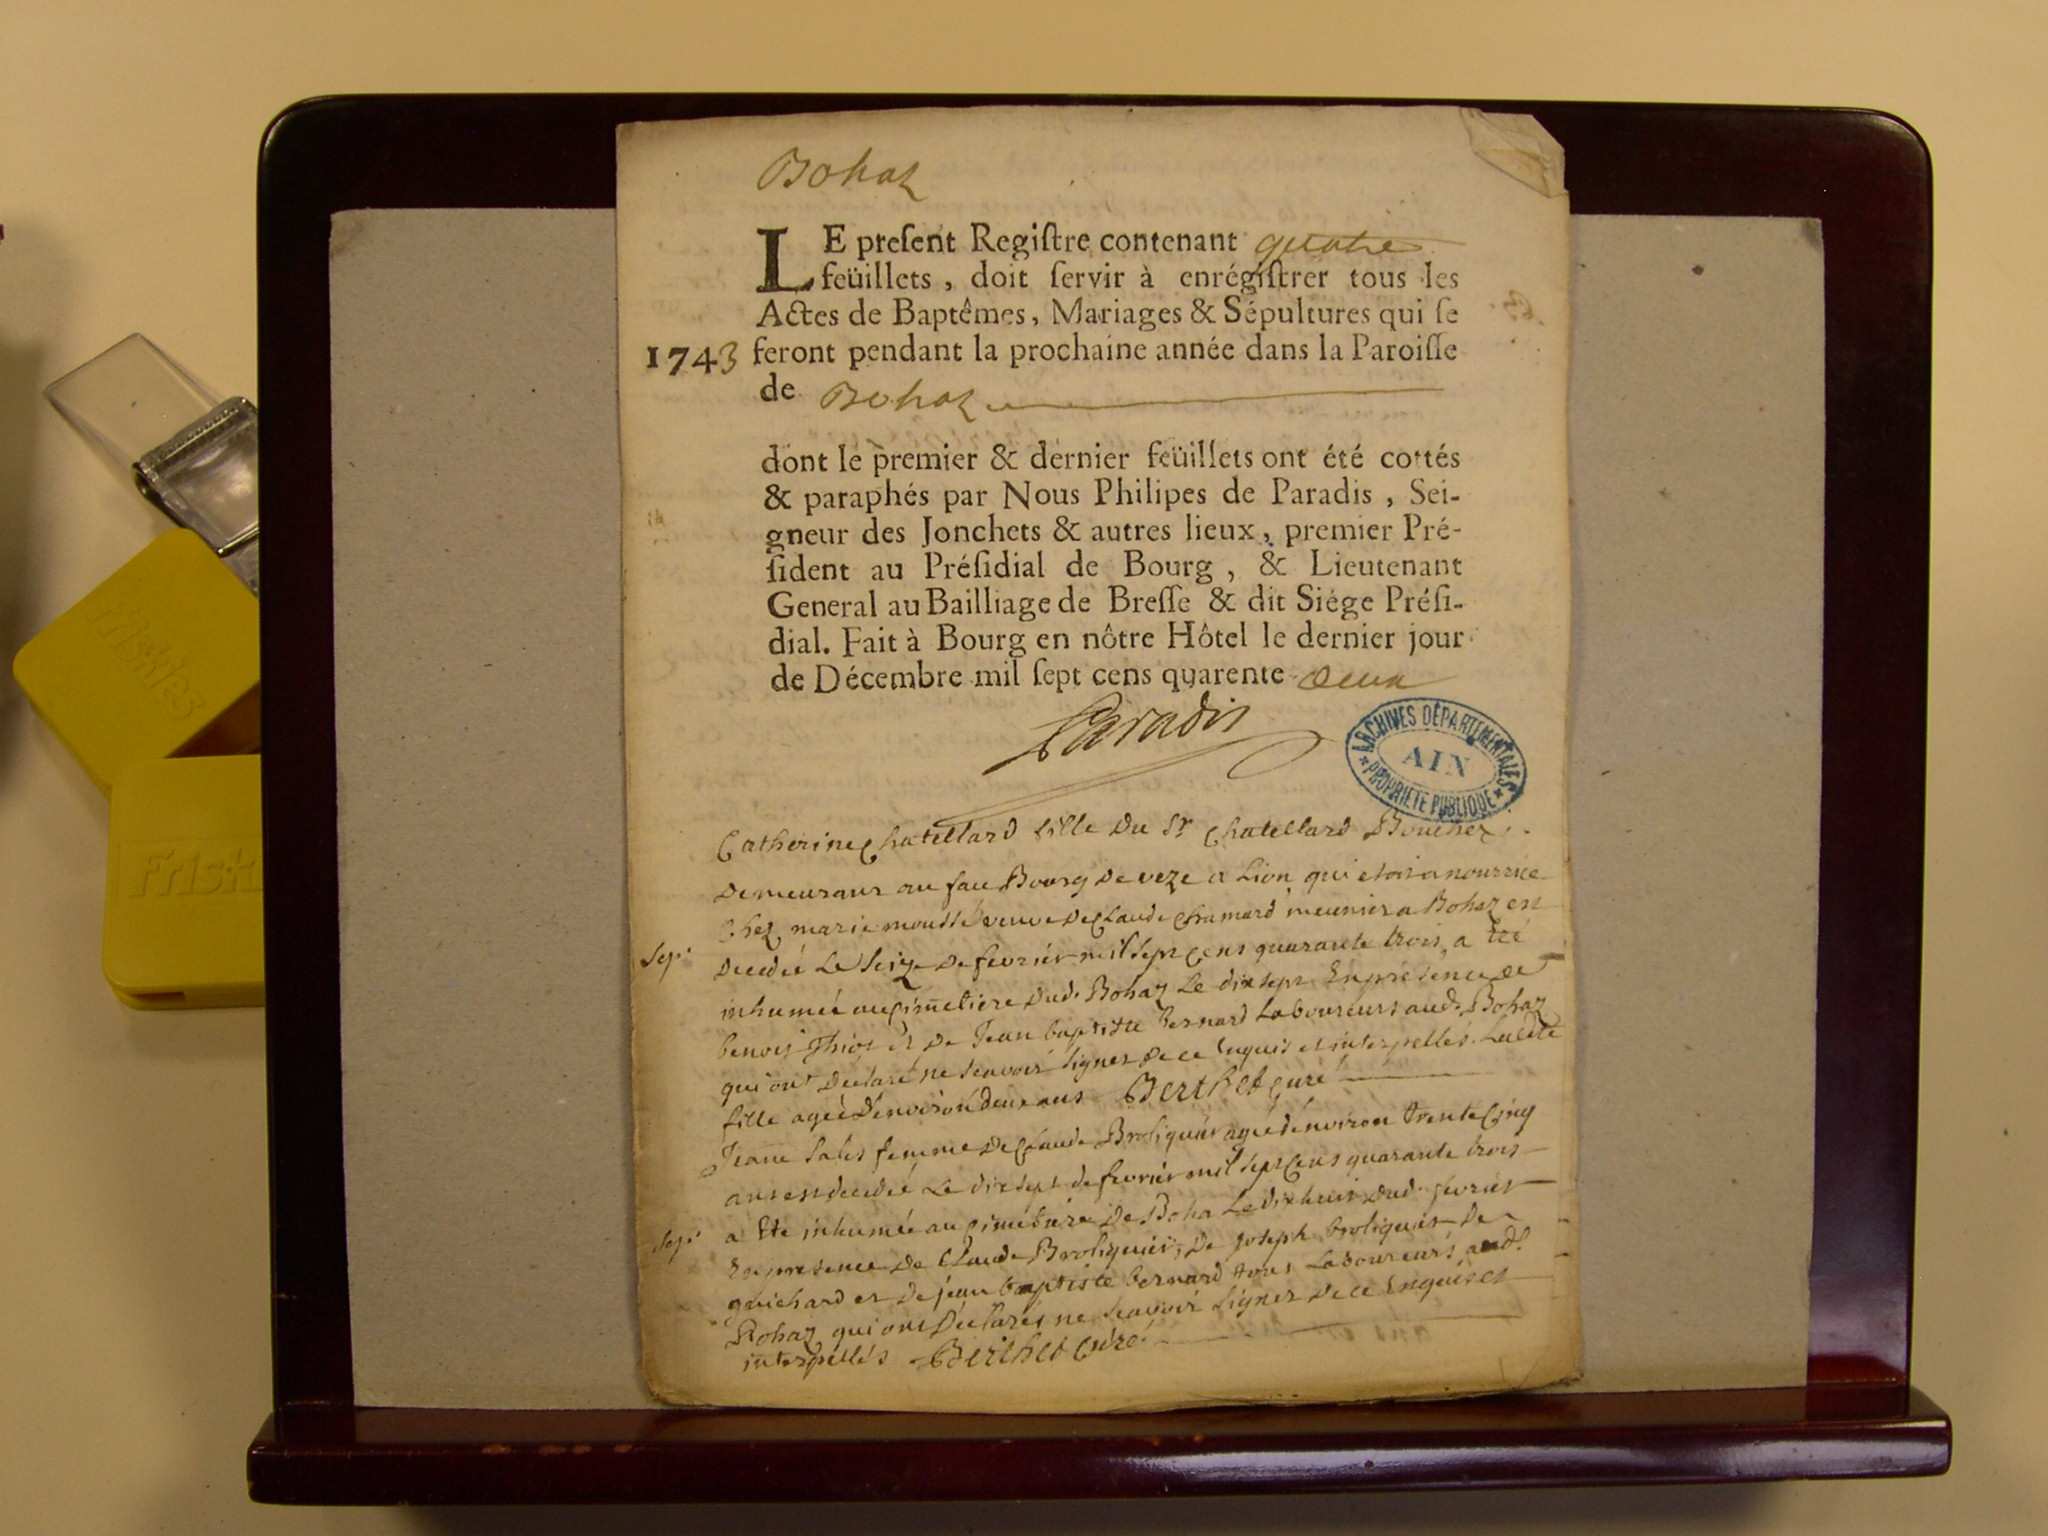 Bohaz
LE preſent Regiſtre contenant quatre
feüillets, doit ſervir à enrégiſtrer tous les
Actes de Baptêmes, Mariages & Sépultures qui ſe
1743 feront pendant la prochaine année dans la Paroiſſe
de Bohaz
dont le premier & dernier feüillets ont été cottés
& paraphés par Nous Philipes de Paradis, Sei-
gneur des Jonchets & autres lieux, premier Pré-
ſident au Préſidial de Bourg, & Lieutenant
General au Bailliage de Breſſe & dit Siége Préſi-
dial. Fait à Bourg en nôtre Hôtel le dernier jour
de Décembre mil ſept cens quarente deux
Paradis
ARCHIVES DÉPARTEMENTALES
AIN
PROPRIÉTÉ PUBLIQUE
Catherine Chatellard fille Du Sr Chatellard Boucher
Demeurant au fau Bourg De veze a Lion qui etoit a nourrice
Chez marie mousse veuve De Claude Chamard meunier a Bohaz est
Sep. decedée Le Seize De fevrier mil sept Cens quarante trois a eté
inhumée au Cimetiere Dud. Bohaz Le dix sept En présence de
benoit Thiot et De Jean baptiste bernard Laboureurs aud. Bohaz
qui ont declaré ne scavoir signer De ce Enquis et interpellés. Ladite
fille ageé D'environ deux ans Berthet Curé
Jeane Sales femme De Claude Broliquier ageé d'environ trente Cinq
ans est decedée Le dix sept de fevrier mil sept Cens quarante trois
Sep. a Eté inhumée au Cimétiere De Boha Le dix huit dud. fevrier
En presence De Claude Broliquier, De joseph broliquier De
guichard et De jean baptiste bernard tous Laboureurs aud.
Bohaz qui ont Déclarés ne scavoir signer De ce Enquis et
interpellés Berthet Curé
Friskies
Friski